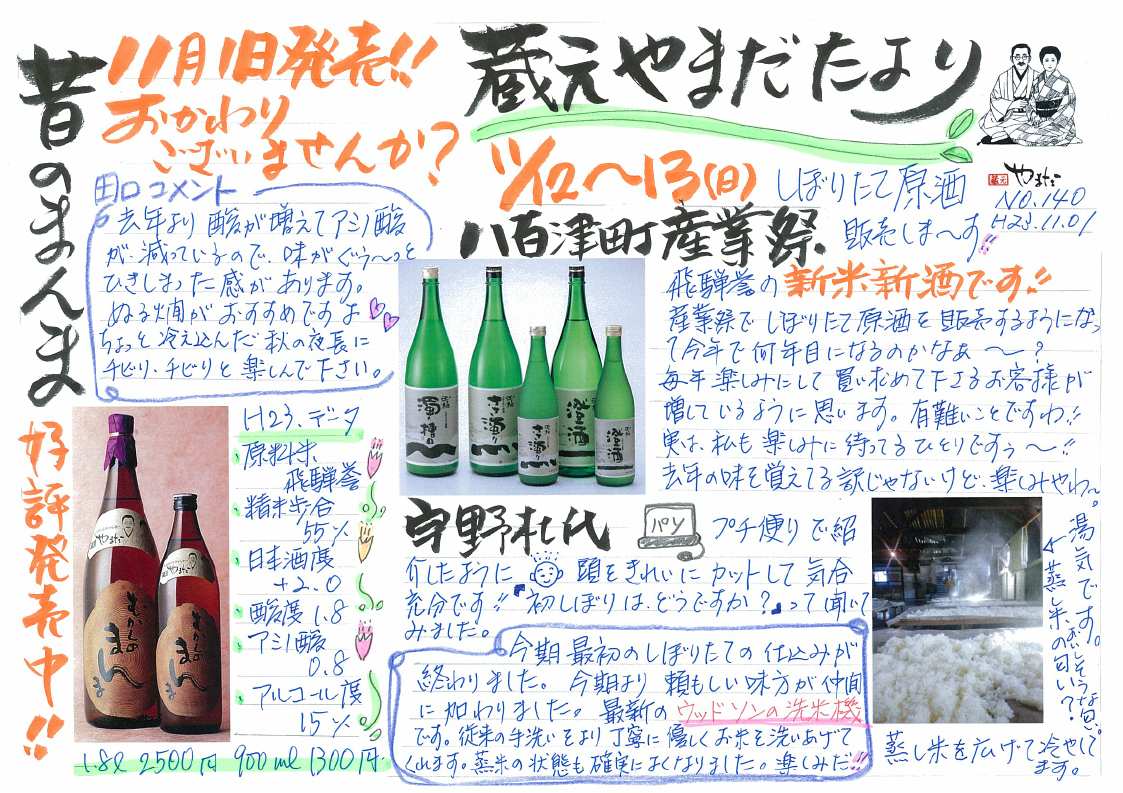 蔵元やまだたより
やまだ
NO.140
H23.11.01
11月1日発売!!
おかわり
ございませんか?
昔のまんま
好評発売中!!
田口コメント
去年より酸が増えてアミノ酸
が減っているので、味がぐぅ〜っと
ひきしまった感があります。
ぬる燗がおすすめですよ
ちょっと冷え込んだ秋の夜長に
チビリ、チビリと楽しんで下さい。
H23.データ
原料米
飛騨誉
精米歩合
55%
日本酒度
+2.0
酸度 1.8
アミノ酸
0.8
アルコール度
15%
むかしの
まんま
むかしの
まんま
1.8ℓ 2500円 900ml 1300円.
11/12〜13(日)
八百津町産業祭
しぼりたて原酒
販売しま〜す!!
飛騨誉の新米新酒です!!
産業祭でしぼりたて原酒を販売するようになっ
て今年で何年目になるのかなぁ〜?
毎年楽しみにして買い求めて下さるお客様が
増しているように思います。有難いことですわ!!
実は、私も楽しみに待ってるひとりですぅ〜!!
去年の味を覚えてる訳じゃないけど、楽しみやわ〜。
濁り槽口
ささ濁り
ささ濁り
澄酒
澄酒
宇野杜氏
パソ
プチ便りで紹
介したように 頭をきれいにカットして気合
充分です!!「初しぼりは、どうですか?」って聞いて
みました。
今期最初のしぼりたての仕込みが
終わりました。今期より頼もしい味方が仲間
に加わりました。最新のウッドソンの洗米機
です。従来の手洗いをより丁寧に優しくお米を洗いあげて
くれます。蒸米の状態も確実によくなりました。楽しみだ!!
湯気です。おいしそうな匂い。
←蒸米の匂い?
蒸し米を広げて冷やして
ます。